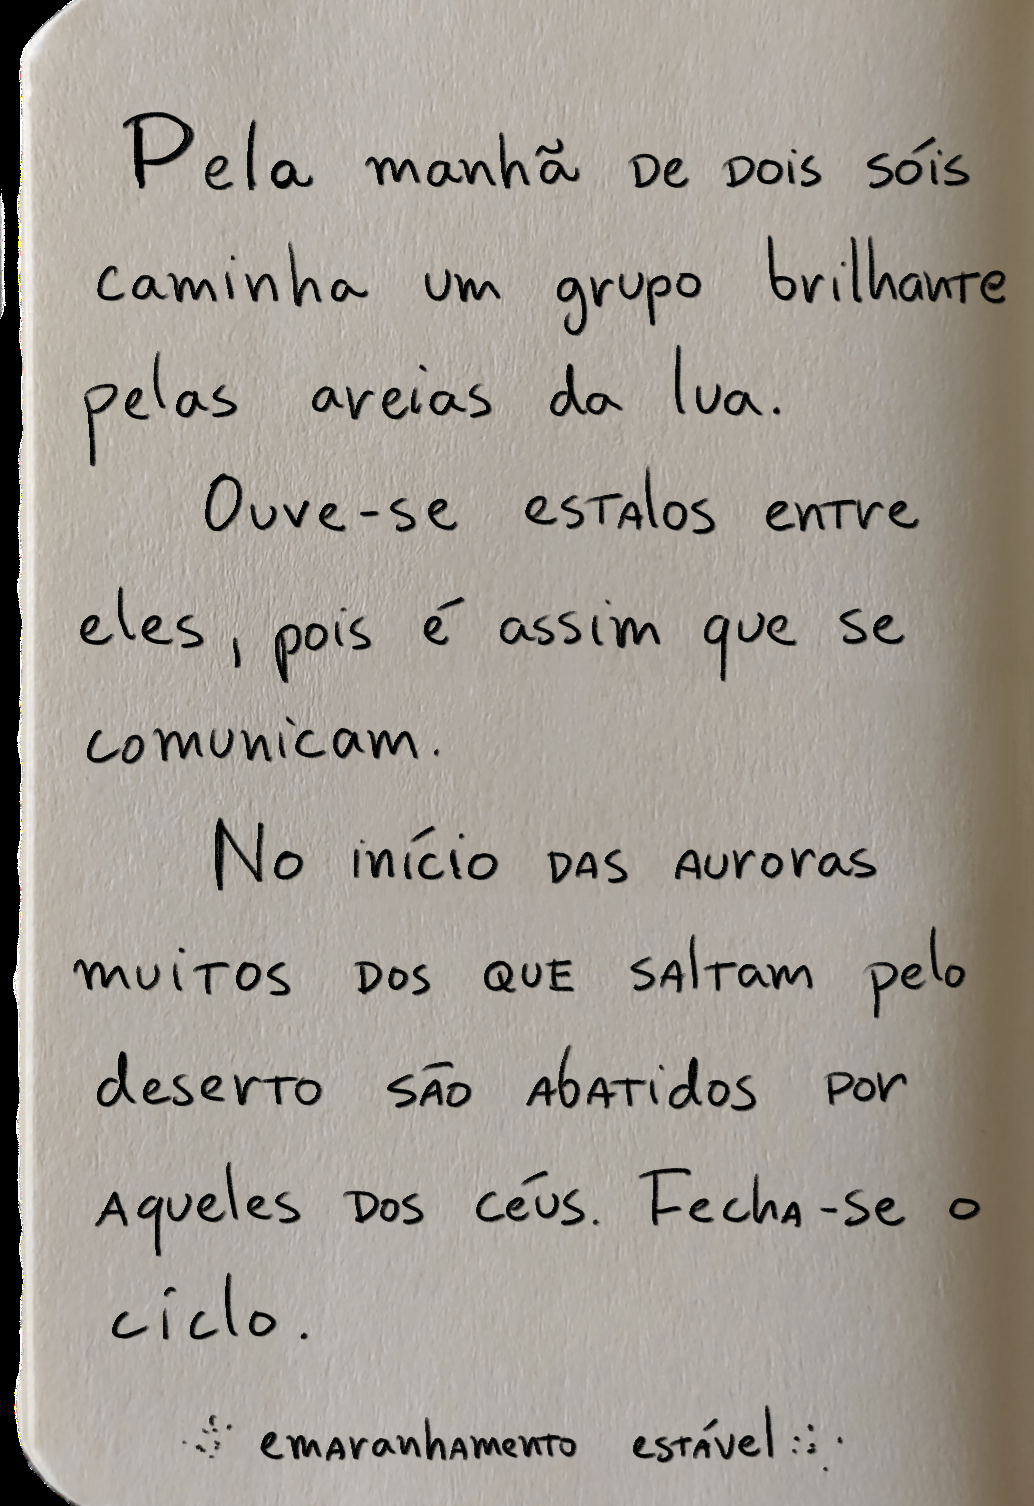 Pela manhã de dois sóis
caminha um grupo brilhante
pelas areias da lua.
Ouve-se estalos entre
eles, pois é assim que se
comunicam.
No início das auroras
muitos dos que saltam pelo
deserto são abatidos por
aqueles dos céus. Fecha-se o
ciclo.
emaranhamento estável